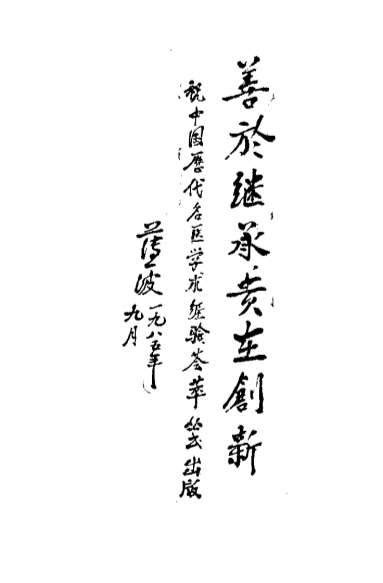 善於继承贵在創新
祝中国歷代名医学术经验荟萃丛书出版
薄一波 一九八五年
九月